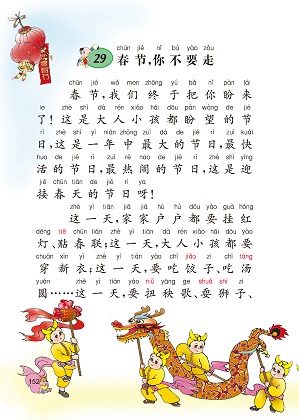 29
chūn jié nǐ bú yào zǒu
春节,你不要走
chūn jié wǒ men zhōng yú bǎ nǐ pàn lái
春节,我们终于把你盼来
le zhè shì dà rén xiǎo hái dōu pàn wàng de jié
了!这是大人小孩都盼望的节
rì zhè shì yì nián zhōng zuì dà de jié rì zuì kuài
日,这是一年中最大的节日,最快
huó de jié rì zuì rè nao de jié rì zhè shì yíng
活的节日,最热闹的节日,这是迎
jiē chūn tiān de jié rì ya
接春天的节日呀!
zhè yì tiān jiā jiā hù hù dōu yào guà hóng
这一天,家家户户都要挂红
dēng tiē chūn lián zhè yì tiān dà rén xiǎo hái dōu yào
灯、贴春联;这一天,大人小孩都要
chuān xīn yī zhè yì tiān yào chī jiǎo zi chī tāng
穿新衣;这一天,要吃饺子、吃汤
yuán zhè yì tiān yào niǔ yāng ge shuǎ shī zi
圆……这一天,要扭秧歌、耍狮子、
152